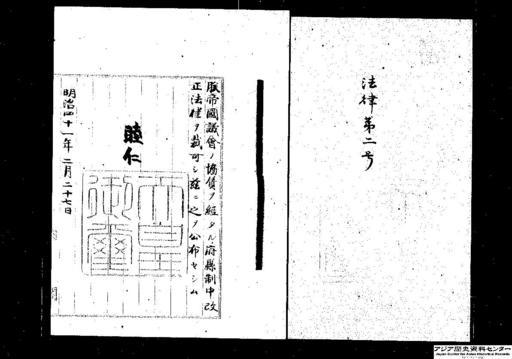 法律第二号
朕帝國議會ノ協賛ヲ經タル府縣制中改
正法律ヲ裁可シ茲ニ之ヲ公布セシム
睦仁
天皇御璽
明治四十一年二月二十七日
アジア歴史資料センター
Japan Center for Asian Historical Records